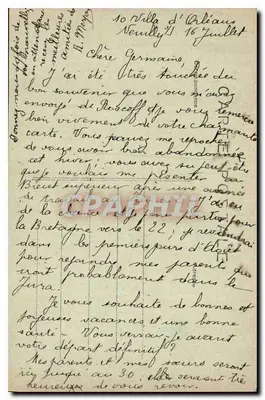 10 Villa d'Orléans
Neuilly s/ 16 Juillet
Chère Germaine,
J'ai été très touchée du
bon souvenir que vous m'avez
envoyé de Roscoff et je vous remercie
bien vivement de votre charmante
carte. Vous pouvez me reprocher
de vous avoir bien abandonnée
cet hiver; vous avez su peut-être
que je voulais me présenter au
Brevet supérieur après une année
de travail
de la chance et je pars pour
la Bretagne vers le 22; je reviendrai
dans les premiers jours d'Août
pour rejoindre mes parents qui
iront probablement dans le
Jura.
Je vous souhaite de bonnes et
joyeuses vacances et une bonne
santé - Vous verrai-je avant
votre départ définitif?
Mes parents et mes sœurs seront
ici jusqu'au 30, elles seraient très
heureuses de vous revoir.
Donnez-nous
en attendant
meilleures
amitiés
R. Mayer
CPARAMA
CARTE POSTALE